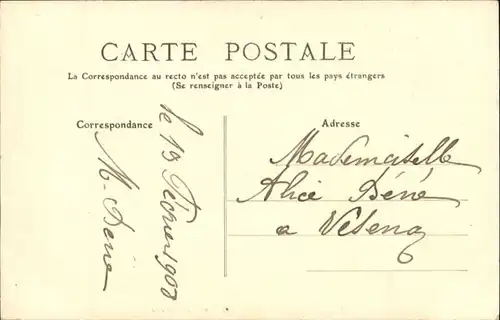 CARTE POSTALE
La Correspondance au recto n'est pas acceptée par tous les pays étrangers
(Se renseigner à la Poste)
Correspondance
le 13 Février 1908
M. Béné
Adresse
Mademoiselle
Alice Béné
a